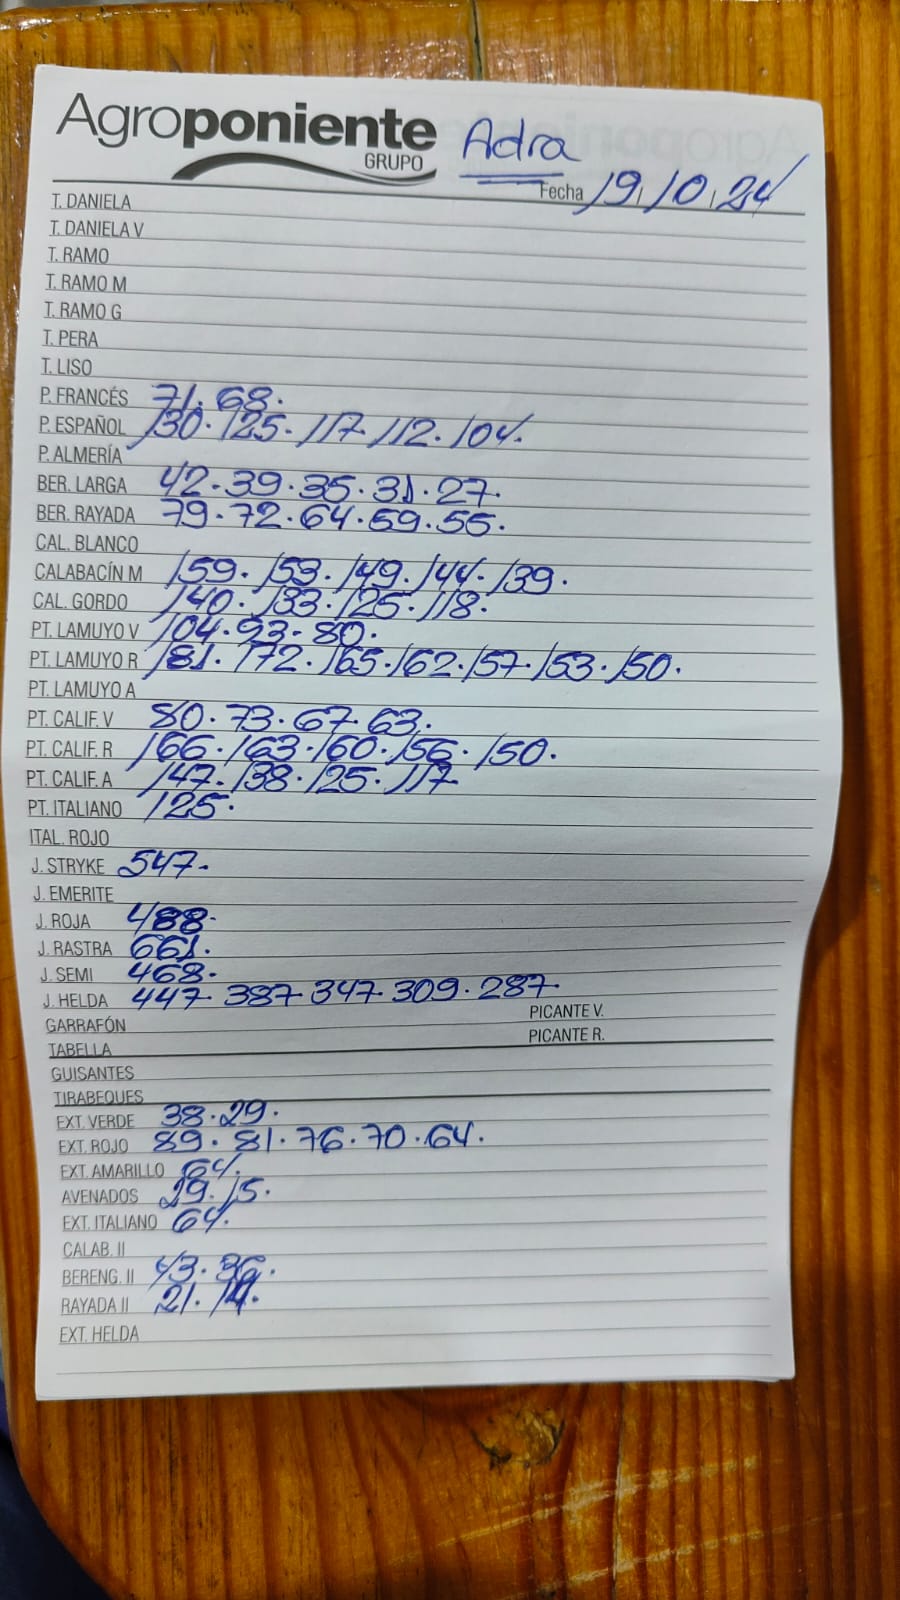 Agroponiente
GRUPO
Adra
Fecha 19, 10, 24
T. DANIELA
T. DANIELA V
T. RAMO
T. RAMO M
T. RAMO G
T. PERA
T. LISO
P. FRANCÉS 71. 68.
P. ESPAÑOL 130. 125. 117. 112. 104.
P. ALMERÍA
BER. LARGA 42. 39. 35. 31. 27.
BER. RAYADA 79. 72. 64. 59. 55.
CAL. BLANCO
CALABACÍN M 159. 153. 149. 144. 139.
CAL. GORDO 140. 133. 125. 118.
PT. LAMUYO V 104. 93. 80.
PT. LAMUYO R 181. 172. 165. 162. 157. 153. 150.
PT. LAMUYO A
PT. CALIF. V 80. 73. 67. 63.
PT. CALIF. R 166. 163. 160. 156. 150.
PT. CALIF. A 147. 138. 125. 117
PT. ITALIANO 125.
ITAL. ROJO
J. STRYKE 547.
J. EMERITE
J. ROJA 488.
J. RASTRA 661.
J. SEMI 468.
J. HELDA 447. 387. 347. 309. 287.
PICANTE V.
GARRAFÓN
PICANTE R.
TABELLA
GUISANTES
TIRABEQUES
EXT. VERDE 38. 29.
EXT. ROJO 89. 81. 76. 70. 64.
EXT. AMARILLO 64.
AVENADOS 29. 15.
EXT. ITALIANO 64.
CALAB. II
BERENG. II 43. 36.
RAYADA II 21.
EXT. HELDA